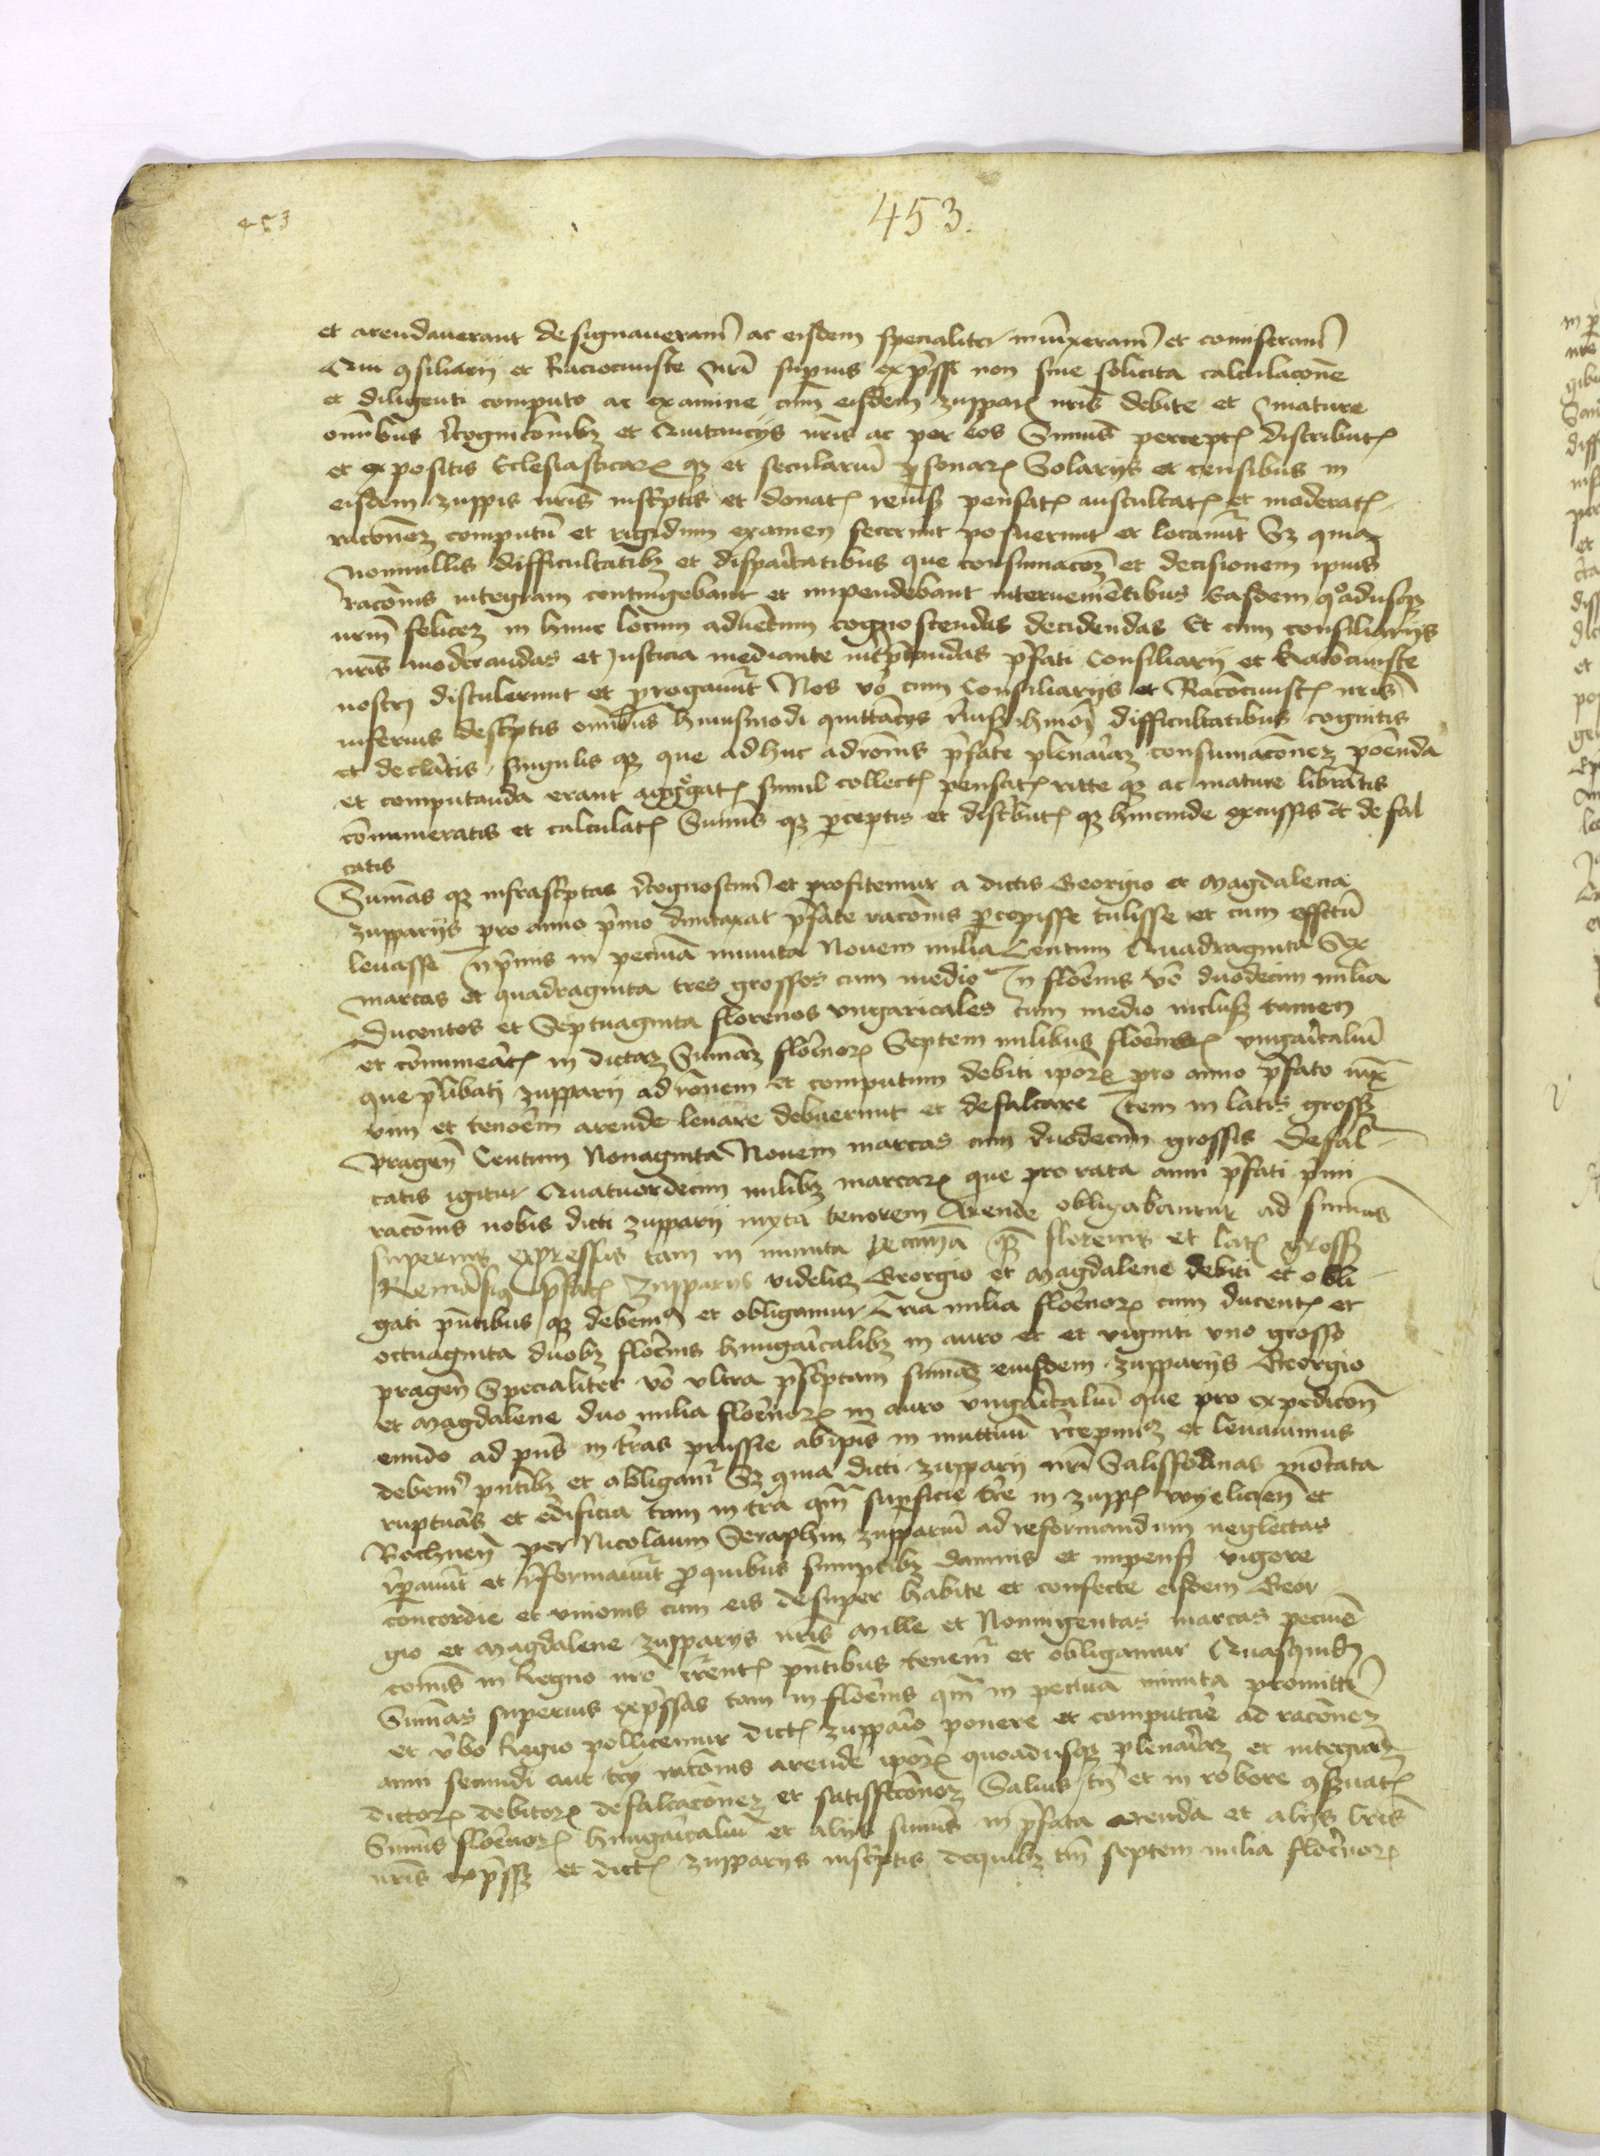 453
453.
et arendauerant designaueram̅ ac eisdem specialiter iniu̅xeram̅ et comiseram̅
Qui ꝯsiliarij et Raciocinist̅e nr̅i superius exp̅ssi non sine solicita calculaco̅ne
et diligenti computo ac examine cum eisdem zupparijs nr̅is debite et mature
om̅ibus r̅cognico̅nibꝫ et Quitancijs nr̅is ac per eos Sum̅is percept̅ distribut̅
et expositis Eclesiasticarꝝ qꝫ et seculariu̅ p̅sonarꝝ Solarijs et censibus in
eisdem zuppis nr̅is inscr̅ptis et donat̅ reuis̅ pensat̅ auscultat̅ et moderat̅
raco̅neꝫ computu̅ et rigidum examen fecerunt posuerunt et locaueru̅t Sꝫ quia
Nonnullis difficultatibꝫ et dispar̅itatibus que consumaco̅eꝫ et decisionem ip̅ius
raco̅nis integram contingebant et impendebant interuenie̅tibus Easdem quoadusqꝫ
nr̅m felice̅ in hunc locum aduentum cognoscendas decidendas Et cum consiliarijs
nr̅is moderandas et Justicia mediante int̅p̅tandas p̅fati Consiliarij et Raco̅ciniste
nostrj distulerunt et p̅rogaueru̅t Nos vo̅ cum Consiliarijs et Raco̅cinist̅ nr̅is
inferius descr̅ptis om̅ibus huiusmodi quitta̅cijs r̅uis̅ hmo̅i difficultatibus cognitis
et declar̅tis singulis qꝫ que adhuc ad ro̅nis p̅fate plenar̅iaꝫ consumaco̅neꝫ pone̅nda
et computanda erant aggregat̅ simul collect̅ pensat̅ ritte qꝫ ac mature libr̅atis
co̅numeratis et calculat̅ Sum̅is qꝫ p̅ceptis et distr̅but̅ qꝫ hincinde excussis et defal
catis
Sum̅as qꝫ infrascr̅ptas r̅cognoscim̅ et profitemur a dictis Georgio et Magdalena
zupparijs pro anno p̅mo dumtaxat p̅fate raco̅nis p̅cepisse tulisse et cum effectu̅
leuasse Inp̅mis in pecunia minuta Nouem milia Centum Quadraginta Sex
marcas et quadraginta tres grossos cum medio In flore̅nis vo̅ duodecim milia
Ducentos et Septuaginta florenos vngaricales cum medio inclus̅ tamen
et co̅numera̅t̅ in dictaꝫ Sum̅aꝫ flor̅enorꝝ Septem milibus flor̅enorꝝ vngar̅icaliu̅
que p̅libati zupparij ad ro̅nem et computum debiti ip̅orꝝ pro anno p̅fato iux̅
vim et tenore̅m arende leuare debuerunt et defalcare Item in latis grossꝫ
pragen̅ Centum Nonaginta Nouem marcas cum duodecim grossis Defal
catis igitur Quatuordecim milibꝫ marcarꝝ que pro rata anni p̅fati p̅mi
raco̅nis nobis dicti zupparij iuxta tenorem Arende obligabantur ad sum̅as
superius expressas tam in minuta pecunia qꝫ florenis et lat̅ grossꝫ
Remansimus p̅fat̅ zupparijs videlicꝫ Georgio et Magdalene debiti et obli
gati pn̅tibus qꝫ debem̅ et obligamur Tria milia flor̅enorꝝ cum ducent̅ et
octuaginta duobꝫ flor̅enis hungar̅icalibꝫ in auro et et viginti vno grosso
pragen̅ Specialiter vo̅ vltra p̅scr̅ptam sum̅aꝫ eiusdem zupparijs Georgio
et Magdalene duo milia flor̅enorꝝ in auro vngar̅icaliu̅ que pro expedico̅ne
eundo ad pn̅s in t̅ras prussie ab ip̅is in mutuu̅ r̅cepimꝫ et leuauimus
debem̅ pn̅tibꝫ et obligam̅ Sꝫ quia dicti zupparij nr̅i Salisfodinas mo̅tata
ruptura̅s et edificia tam in t̅ra qm̅ superficie t̅re in zupp̅ wyeliczen̅ et
Bochnen̅ per Nicolaum Seraphin zuppariu̅ ad reformandum neglectas
r̅paueru̅t et r̅formaueru̅t p̅quibus sumptibꝫ damnis et impens̅ vigore
concordie et vnionis cum eis desuper habite et confecte eisdem Geor
gio et Magdalene zupparijs nr̅is Mille et Nonningentas marcas pecu̅ie
comu̅is in Regno nr̅o curre̅nt̅ pn̅tibus tenem̅ et obligamur Quasquid̅
Sum̅as superius exp̅ssas tam in flor̅enis qm̅ in pecunia minuta promittim̅
et v̅bo Regio pollicemur dict̅ zuppar̅io ponere et computare̅ ad raco̅neꝫ
anni secundi aut tcij raco̅nis arende ip̅orꝝ quoadusqꝫ plenar̅iaꝫ et integraꝫ
dictorꝝ debitorꝝ defalcaco̅neꝫ et satisfacco̅neꝫ Saluis tn̅ et in robore ꝯs̅uat̅
Sum̅is flor̅enorꝝ hungar̅icaliu̅ et alijs sum̅is in p̅fata arenda et alijs lr̅is
nr̅is exp̅ssꝫ et dict̅ zupparijs inscr̅ptis dequibꝫ tn̅ septem milia flor̅enorꝝ